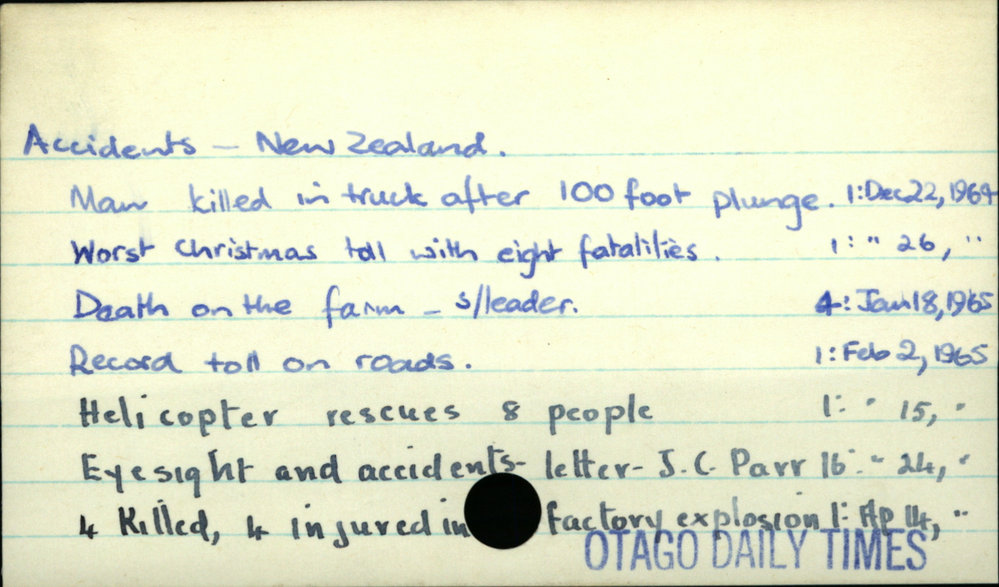 Accidents — New Zealand.
Man killed in truck after 100 foot plunge. 1: Dec 22, 1964
Worst Christmas toll with eight fatalities. 1: " 26, "
Death on the farm - s/leader. 4: Jan 18, 1965
Record toll on roads. 1: Feb 2, 1965
Helicopter rescues 8 people 1: " 15, "
Eyesight and accidents - letter - J.C. Parr 16: " 24, "
4 Killed, 4 injured in factory explosion 1: Ap 14, "
OTAGO DAILY TIMES